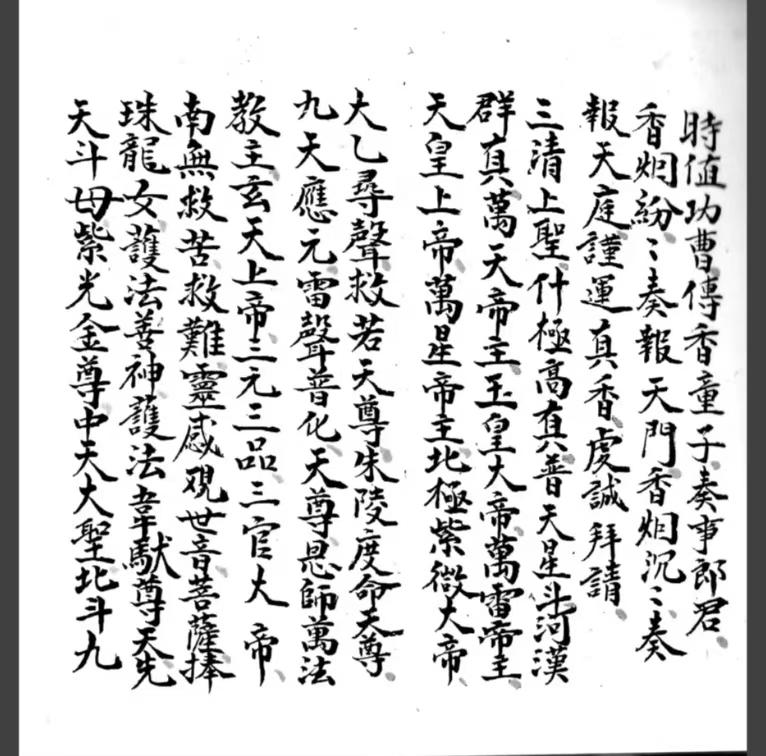 時值功曹傳香童子奏事郎君
香烟紛〻奏報天門香烟沉〻奏
報天庭謹運真香虔誠拜請
三清上聖什極高真普天星斗河漢
群真萬天帝主玉皇大帝萬雷帝主
天皇上帝萬星帝主北極紫微大帝
大乙尋聲救苦天尊朱陵度命天尊
九天應元雷聲普化天尊恩師萬法
教主玄天上帝三元三品三官大帝
南無救苦救難靈感观世音菩薩捧
珠龍女護法善神護法韋馱尊天先
天斗母紫光金尊中天大聖北斗九